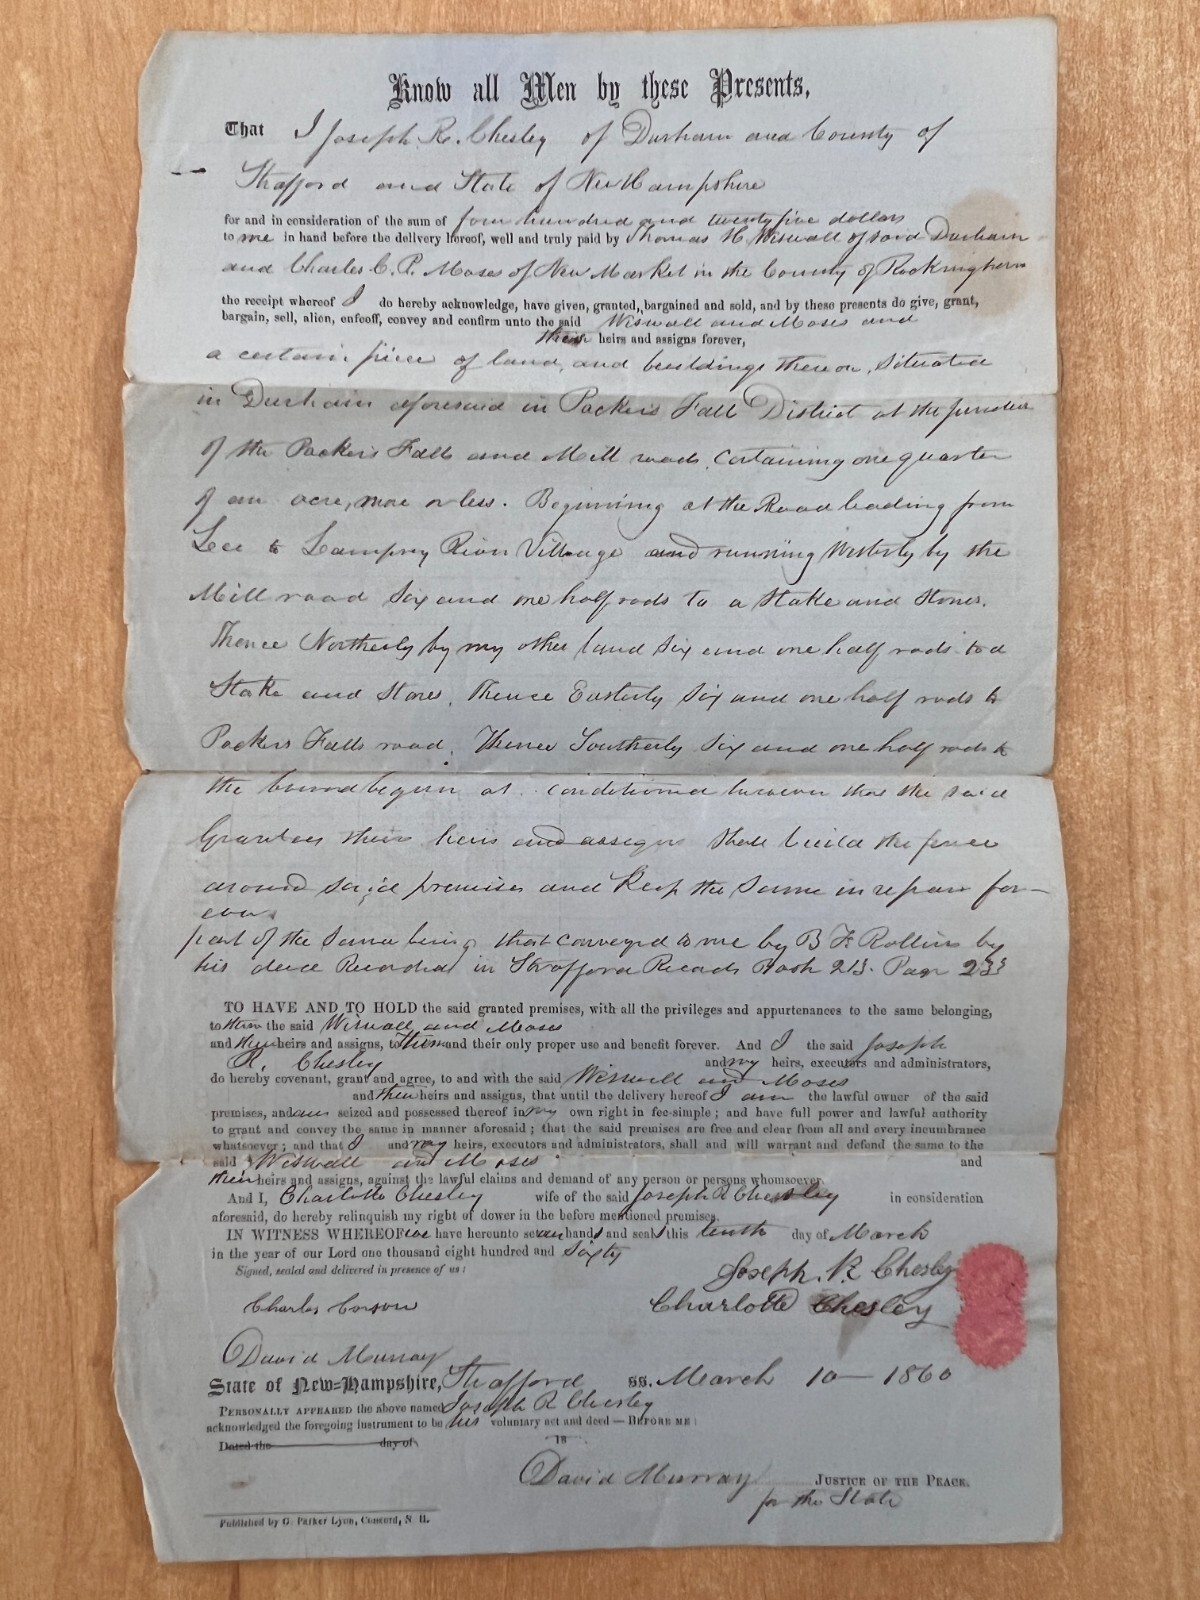 Know all Men by these Presents,
That I Joseph R. Chesley of Durham and County of
Strafford and State of New Hampshire
for and in consideration of the sum of four hundred and twenty five dollars
to me in hand before the delivery hereof, well and truly paid by Thomas H. Wiswall of said Durham
and Charles C. P. Moses of New Market in the County of Rockingham
the receipt whereof I do hereby acknowledge, have given, granted, bargained and sold, and by these presents do give, grant,
bargain, sell, alien, enfeoff, convey and confirm unto the said Wiswall and Moses and
their heirs and assigns forever,
a certain piece of land, and buildings thereon, Situated
in Durham aforesaid in Packers Fall District at the
of the Packers Falls and Mill roads, Containing one quarter
of an acre, more or less. Beginning at the Road leading from
Lee to Lamprey River Village and running Westerly by the
Mill road Six and one half rods to a Stake and Stones.
Thence Northerly by my other land Six and one half rods to a
Stake and Stones, Thence Easterly Six and one half rods to
Packers Falls road, Thence Southerly Six and one half rods to
the bound begun at. Conditioned however that the said
Grantees their heirs and assigns shall build the fence
around said premises and keep the Same in repair for-
ever.
part of the Same being that conveyed to me by B F Rollins by
his deed Recorded in Strafford Records Book 213. Page
TO HAVE AND TO HOLD the said granted premises, with all the privileges and appurtenances to the same belonging,
to them the said Wiswall and Moses
and their heirs and assigns, to them and their only proper use and benefit forever. And I the said Joseph
R. Chesley and my heirs, executors and administrators,
do hereby covenant, grant and agree, to and with the said Wiswall and Moses
and their heirs and assigns, that until the delivery hereof I am the lawful owner of the said
premises, and am seized and possessed thereof in my own right in fee-simple; and have full power and lawful authority
to grant and convey the same in manner aforesaid; that the said premises are free and clear from all and every incumbrance
whatsoever; and that I and my heirs, executors and administrators, shall and will warrant and defend the same to the
said Wiswall and Moses and
their heirs and assigns, against the lawful claims and demand of any person or persons whomsoever.
And I, Charlotte Chesley wife of the said Joseph R Chesley in consideration
aforesaid, do hereby relinquish my right of dower in the before mentioned premises.
IN WITNESS WHEREOF we have hereunto set our hands and seals this tenth day of March
in the year of our Lord one thousand eight hundred and sixty
Signed, sealed and delivered in presence of us:
Joseph. R Chesley
Charles Corson Charlotte Chesley
David Murray
State of New-Hampshire, Strafford ss. March 10 — 1860
PERSONALLY APPEARED the above named Joseph R Chesley
acknowledged the foregoing instrument to be his voluntary act and deed — BEFORE ME:
Dated the day of 18
David Murray JUSTICE OF THE PEACE.
for the State
Published by G. Parker Lyon, Concord, N. H.